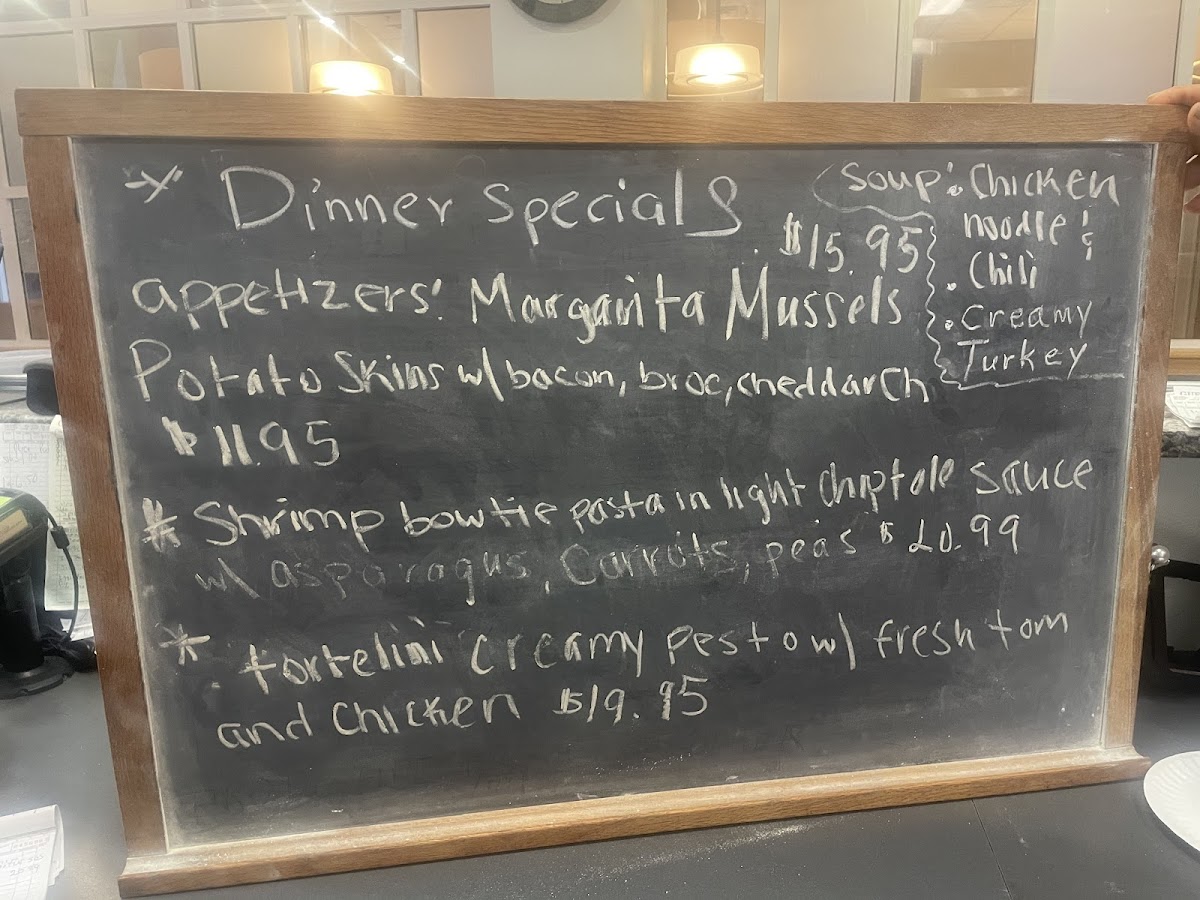 * Dinner specials
$15.95
appetizers: Margarita Mussels
Potato Skins w/ bacon, broc, cheddar Ch
$11.95
* Shrimp bowtie pasta in light chiptole sauce
w/ asparagus, Carrots, peas $20.99
* tortelini creamy pesto w/ fresh tom
and Chicken $19.95
Soup: Chicken
noodle &
. Chili
. Creamy
Turkey